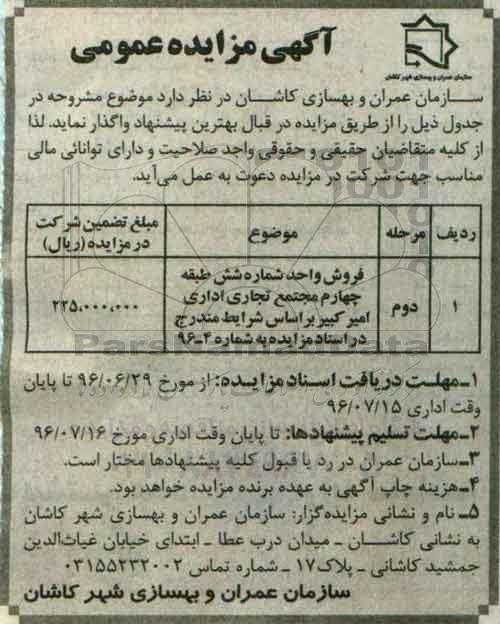 آگهی مزایده عمومی
سازمان عمران و بهسازی شهر کاشان
سازمان عمران و بهسازی کاشان در نظر دارد موضوع مشروحه در
جدول ذیل را از طریق مزایده در قبال بهترین پیشنهاد واگذار نماید. لذا
از کلیه متقاضیان حقیقی و حقوقی واجد صلاحیت و دارای توانائی مالی
مناسب جهت شرکت در مزایده دعوت به عمل می‌آید.
ردیف مرحله موضوع مبلغ تضمین شرکت
در مزایده (ریال)
۱ دوم فروش واحد شماره شش طبقه
چهارم مجتمع تجاری اداری
امیر کبیر بر اساس شرایط مندرج
در اسناد مزایده به شماره ۴-۹۶
۲۲۵,۰۰۰,۰۰۰
ParsNamadData
۱ـ مهلت دریافت اسناد مزایده: از مورخ ۹۶/۰۶/۲۹ تا پایان
وقت اداری ۹۶/۰۷/۱۵
۲ـ مهلت تسلیم پیشنهادها: تا پایان وقت اداری مورخ ۹۶/۰۷/۱۶
۳ـ سازمان عمران در رد یا قبول کلیه پیشنهادها مختار است.
۴ـ هزینه چاپ آگهی به عهده برنده مزایده خواهد بود.
۵ـ نام و نشانی مزایده‌گزار: سازمان عمران و بهسازی شهر کاشان
به نشانی کاشان ـ میدان درب عطا ـ ابتدای خیابان غیاث‌الدین
جمشید کاشانی ـ پلاک ۱۷ ـ شماره تماس ۰۳۱۵۵۲۳۲۰۰۲
سازمان عمران و بهسازی شهر کاشان